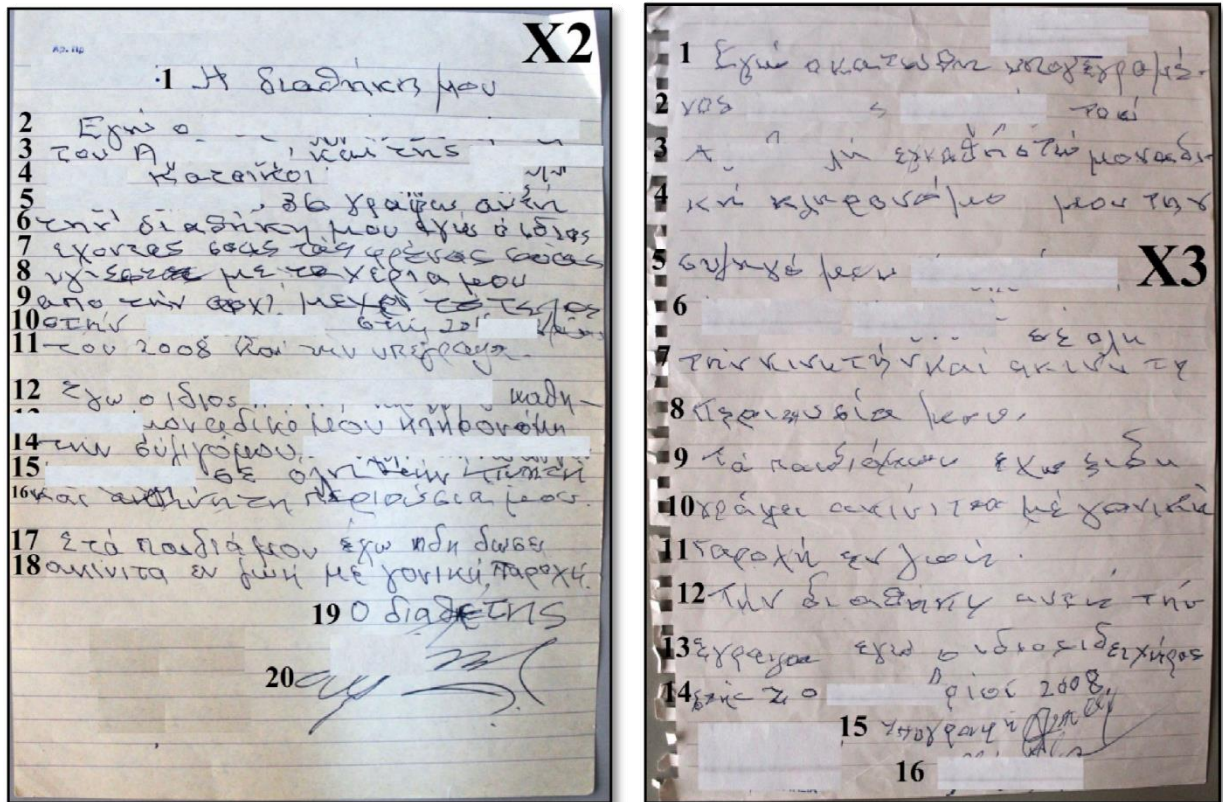 X2
1 Η διαθήκη μου
2 Εγώ ο
3 του Α και της
4 κατοικοι
5 36 γράφω αυτή
6 την διαθήκη μου εγώ ο ιδιος
7 έχοντας σωας τας φρένας
8 με τα χέρια μου
9 απο την αρχι μεχρι το τελος
10 στην στις 20
11 του 2008 και την υπέγραψα.
12 Εγω ο ιδιος καθη-
μου κληρονόμη
14 την σύζιγόμου
15 σε ολη την
16 και περιουσια μου.
17 Στά παιδιά μου έχω ηδη δωσει
18 ακινιτα εν ζωή με γονική παροχή.
19 Ο διαθέτης
20
X3
1 Εγώ ο κατωθη υπογεγραμέ-
2 νος του
3 Α εγκαθηστώ μοναδι-
4 κή κληρονόμο μου την
5 συζηγό μου
6 σε ολη
7 την κινητή και ακινητη
8 περιουσία μου.
9 Τά παιδιάμου εχω ειδη
10 γράψει ακίνιτα μέ γονική
11 παροχή εν ζωή.
12 Την διαθήκη αυτή την
13 εγραψα εγώ ο ιδιος ιδειχήρος
14 στις 20 ριος 2008
15 υπογραφή
16